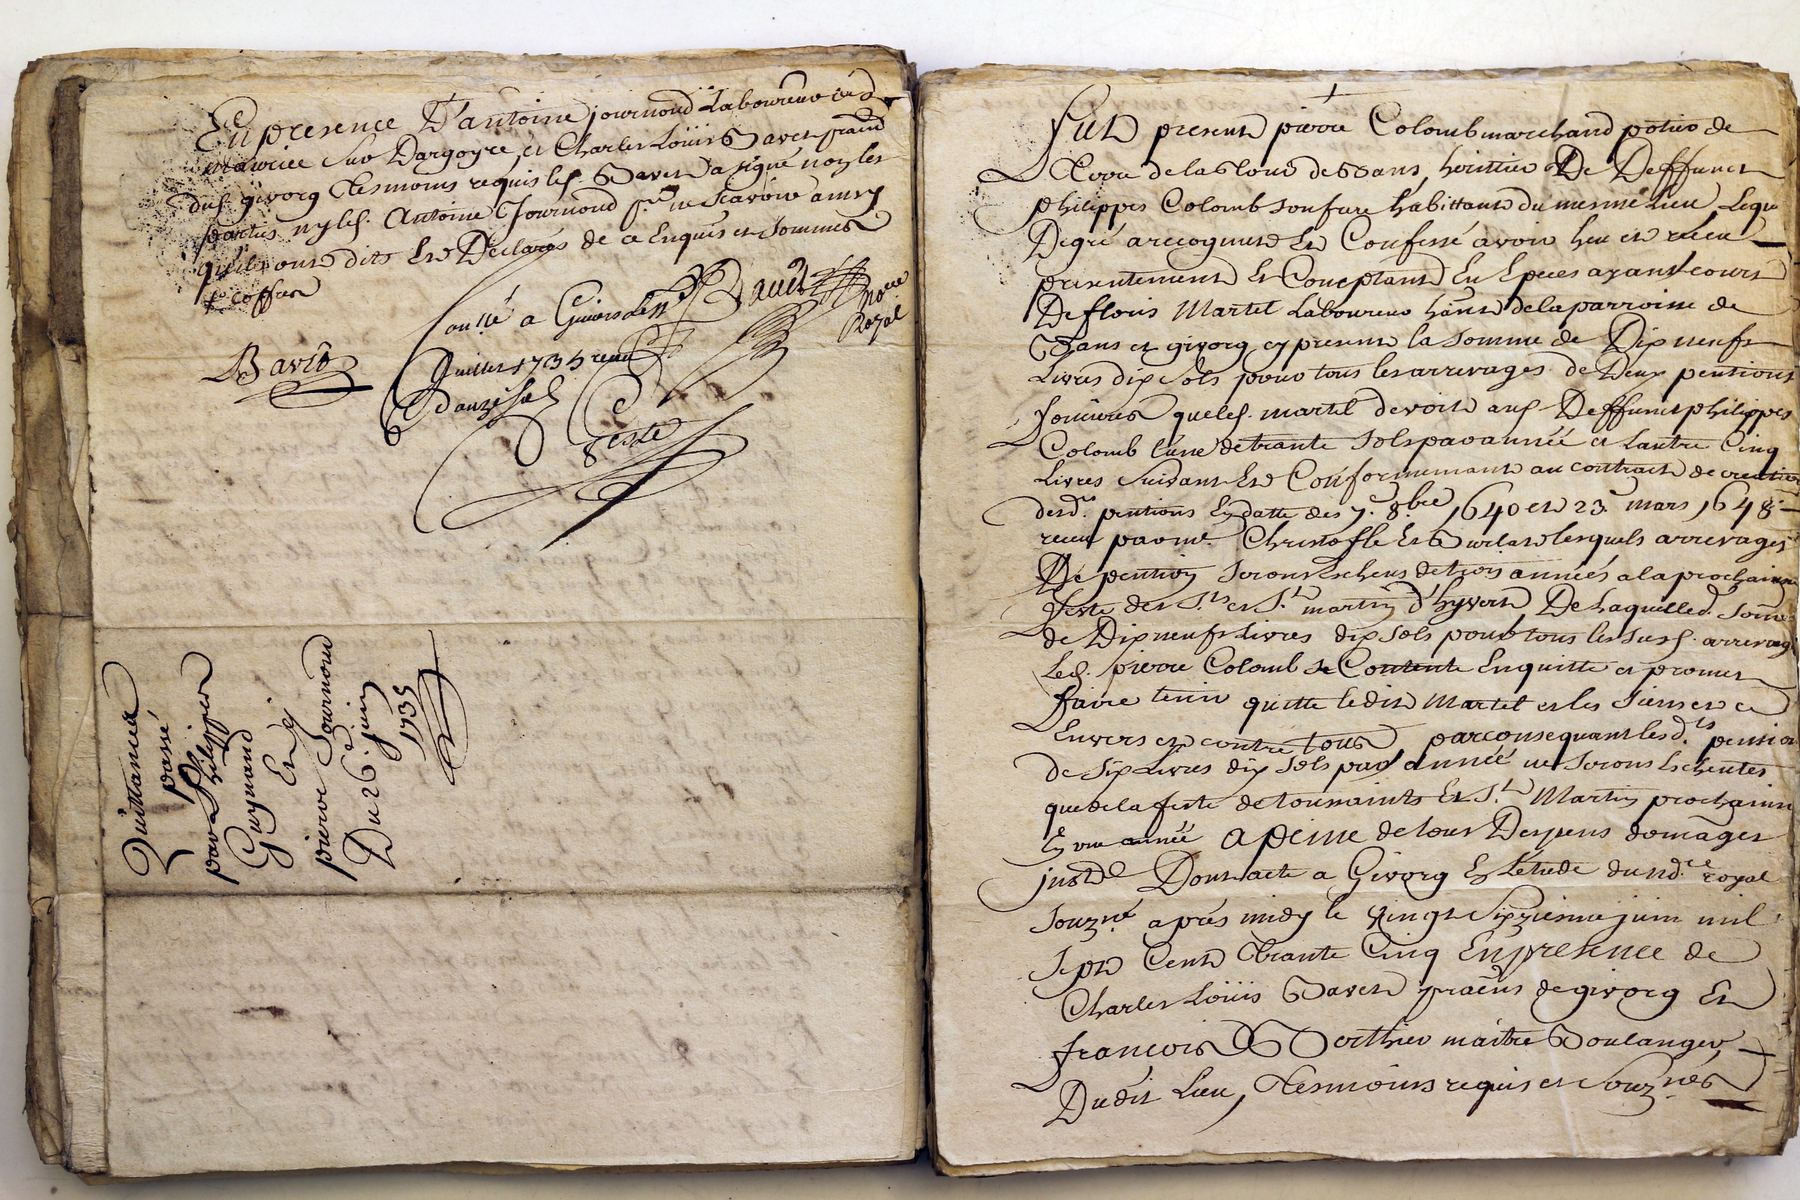 En presence D'antoine journond Laboureur
maurice sur Dargoyre, et Charles Loüis Bavet
dud. givorg tesmoins requis led. Bavet a signé non les
parties ny led. Antoine Journond p.r ne scavoir ainsy
quils ont dits Et Déclarés de ce Enquis et sommés
Bavet
Bavet
no.re
Royal
a Givors le
Juillet 1735 receu
douze sols
Geste
Quittance
passé
par Philippe
Guynand
Et
pierre Journond
Du 26.e juin
1735
Fut present pierre Colomb marchand potier de
terre de la tour de Bans, heritier De Deffunct
philippes Colomb son frere habittant du mesme lieu, Leque
Degré a recognut Et Confessé avoir heu et receu
presentement Et Comptant En Especes ayant cours
De floris Martel Laboureur de la parroisse de
Bans et givorg cy present la somme de Dix neufs
Livres dix sols pour tous les arrerages de Deux pentions
foncieres queled. martel devoit aud. Deffunct philippes
Colomb l'une de trante sols par année et lautre Cinq
Livres suivant Et Conformement au contract de creation
desd. pentions En datte des 7.e 8.bre 1640 et 23.e mars 1648
receu par me. Christofle Et lesquels arrerages
De pention seront Echeus de trois années a la prochaine
feste des S.ts et S.t martin d'hyvert De Laquelled. somme
de Dix neufs Livres dix sols pour tous les susd. arrerag
Led. pierre Colomb se Contente En quitte et promet
faire tenir quitte ledit Martel et les siens et ce
Envers et contre tous par consequant lesd.ts pention
de six Livres dix sols par année ne seront Echeutes
que de la feste de toussaints Et S.t Martin prochaine
En une année a peine de tous Despens domages
just.de Dont acte a Givorg En Letude du no.re royal
souz.né après midy le vingt sixziesme juin mil
sept Cent trante Cinq En presence de
Charles Loüis Bavet de givorg Et
françois Berthier maitre Boulanger,
Dudit Lieu, tesmoins requis et souz.nés